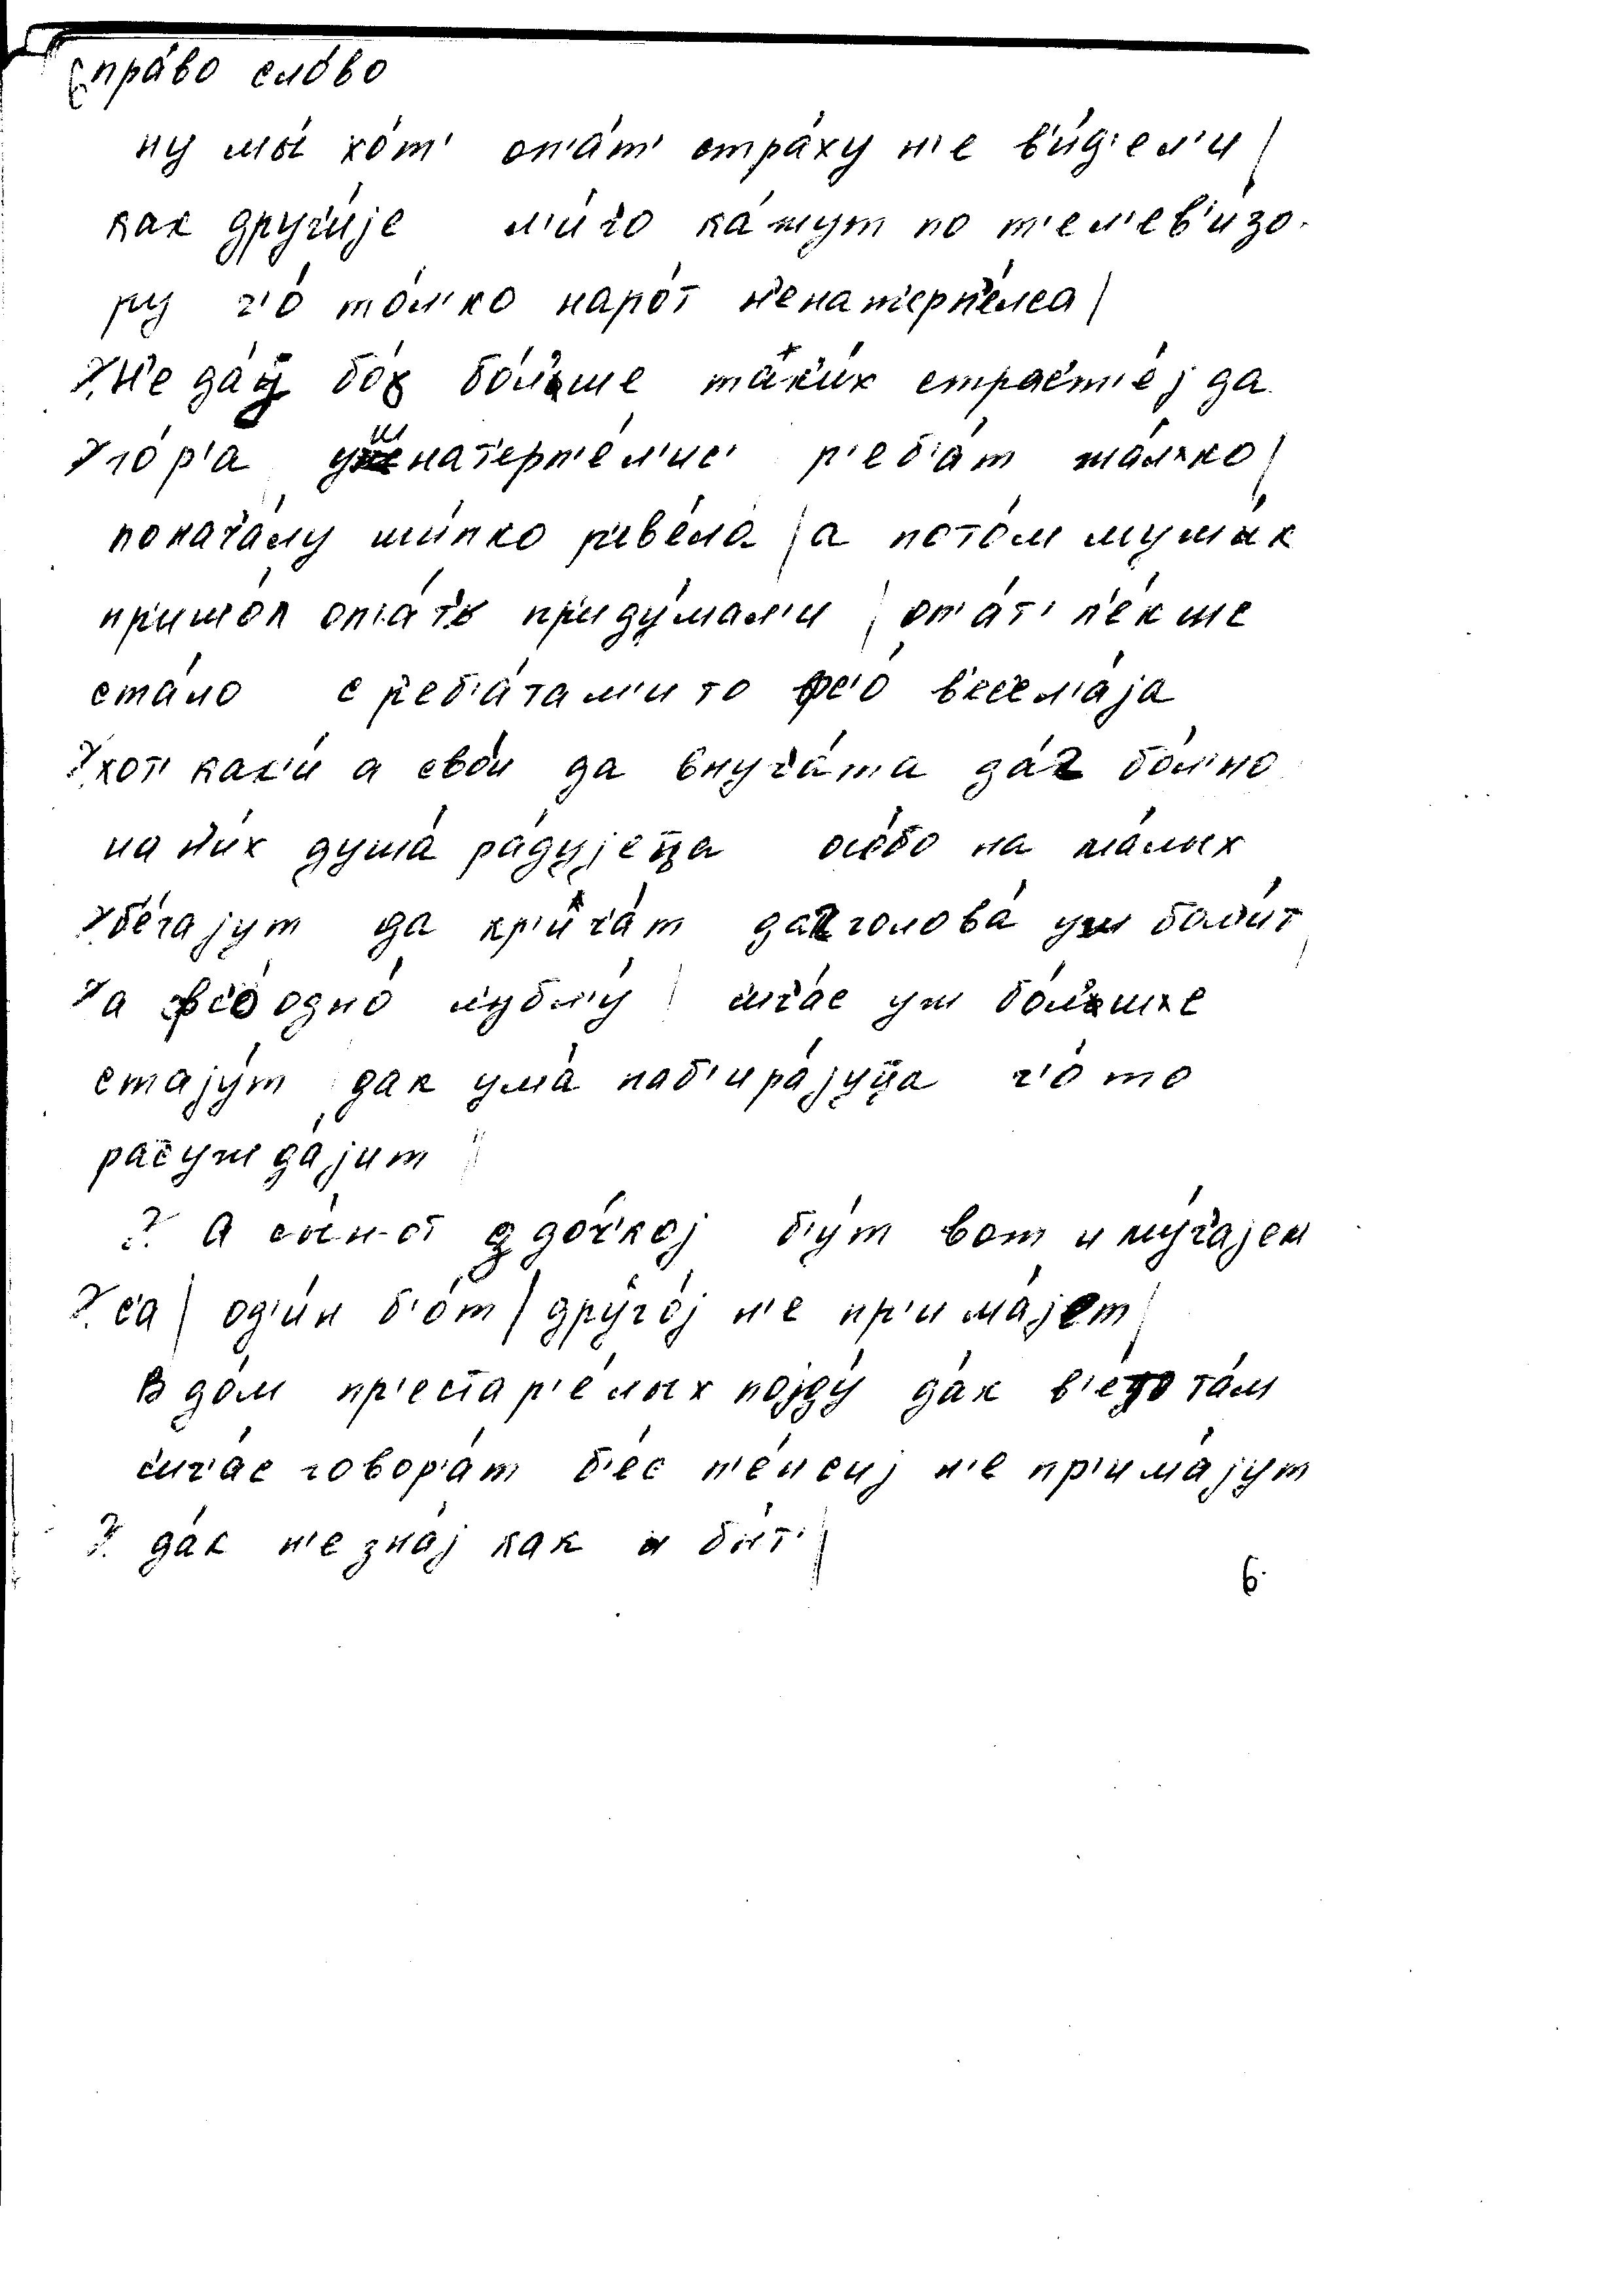 пра́во сло́во
ну мы́ хо́т' оп'а́т' стра́ху н'е в'и́д'ел'и |
как друг'и́jе л'и́хо ка́жут по т'ел'ев'и́зо-
ру ч'о́ то́л'ко наро́т н'е нат'ерп'е́лса |
У. Н'е да́j бо́х бо́л'ше та́к'и́х страст'е́j да
У го́р'а уш нат'ерп'е́л'ис' р'еб'а́т жа́лко |
понача́лу ши́пко р'ев'е́ла | а пото́м мужы́к
пришо́л оп'а́т' пр'иду́мал'и | оп'а́т' л'е́кше
ста́ло с р'еб'а́там'и то фс'о́ в'ес'ел'а́jа
У. хот' как'и́ а сво́и да внуча́та да́к бо́л'но
на н'и́х душа́ ра́дуjеца осо́бо на ма́лых
У. б'е́гаjут да кр'ича́т дак голова́ уш бол'и́т
У а фс'о́ одно́ л'убл'у́ | с'ич'а́с уш бо́л'шже
стаjу́т дак ума́ наб'ира́jуца ч'о́ то
рас̄ужда́jит |
У. А сы́н-от з до́ч'коj п'jу́т вот и му́ч'аjем
У. с'а | од'и́н б'jо́т | друго́j н'е пр'има́jет |
В до́м пр'естар'е́лых поjду́ да́к в'е́то та́м
с'ич'а́с говор'а́т б'е́с п'е́нсиj н'е пр'има́jут
У. да́к н'е зна́j как и бы́т' |
6.